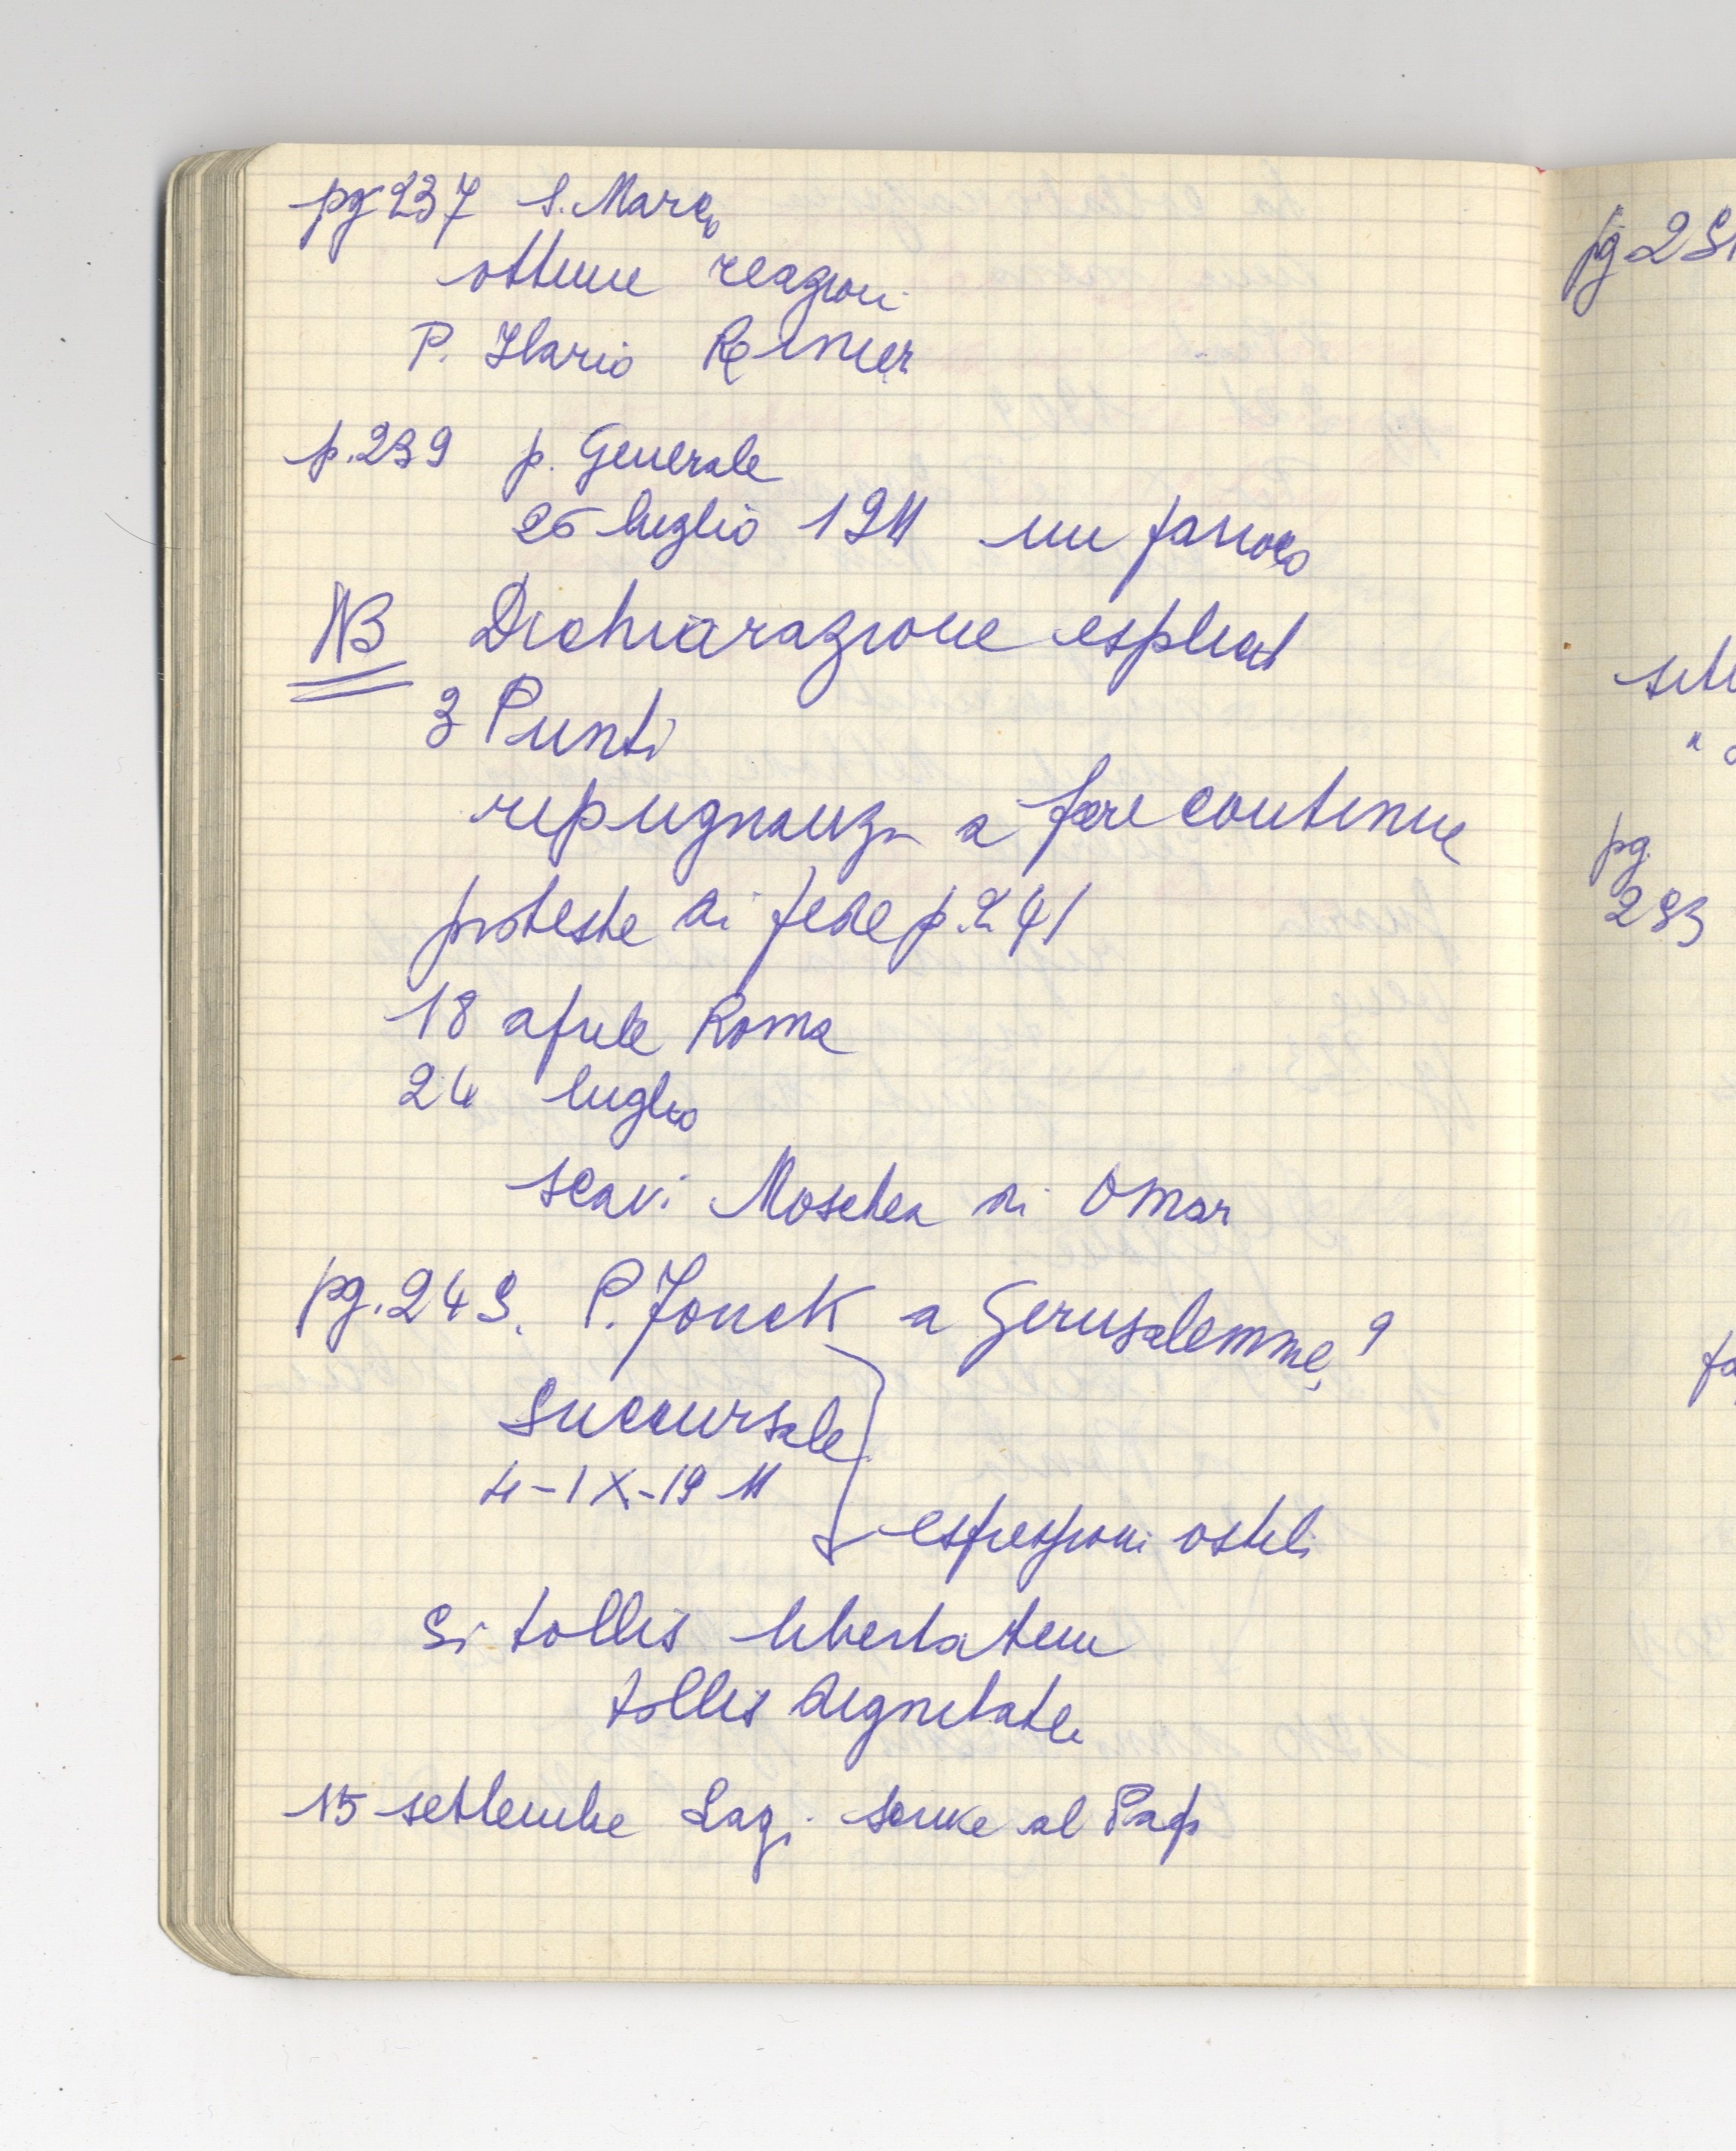 pg 237 S. Marco
ottime reazioni
P. Ilario Rinier
p. 239 p. Generale
26 luglio 1911 un parroco
NB Dichiarazione esplicit
3 Punti
ripugnanz a fare continue
proteste di fede p. 241
18 aprile Roma
24 luglio
scavi Moschea di Omar
pg. 243. P. Fonck a Gerusalemme?
Succursale
4-IX-1911
espressioni ostili
Si tollis libertatem
tollis dignitate
15 settembre Lag. scrive al Pap
pg 2
pg.
283